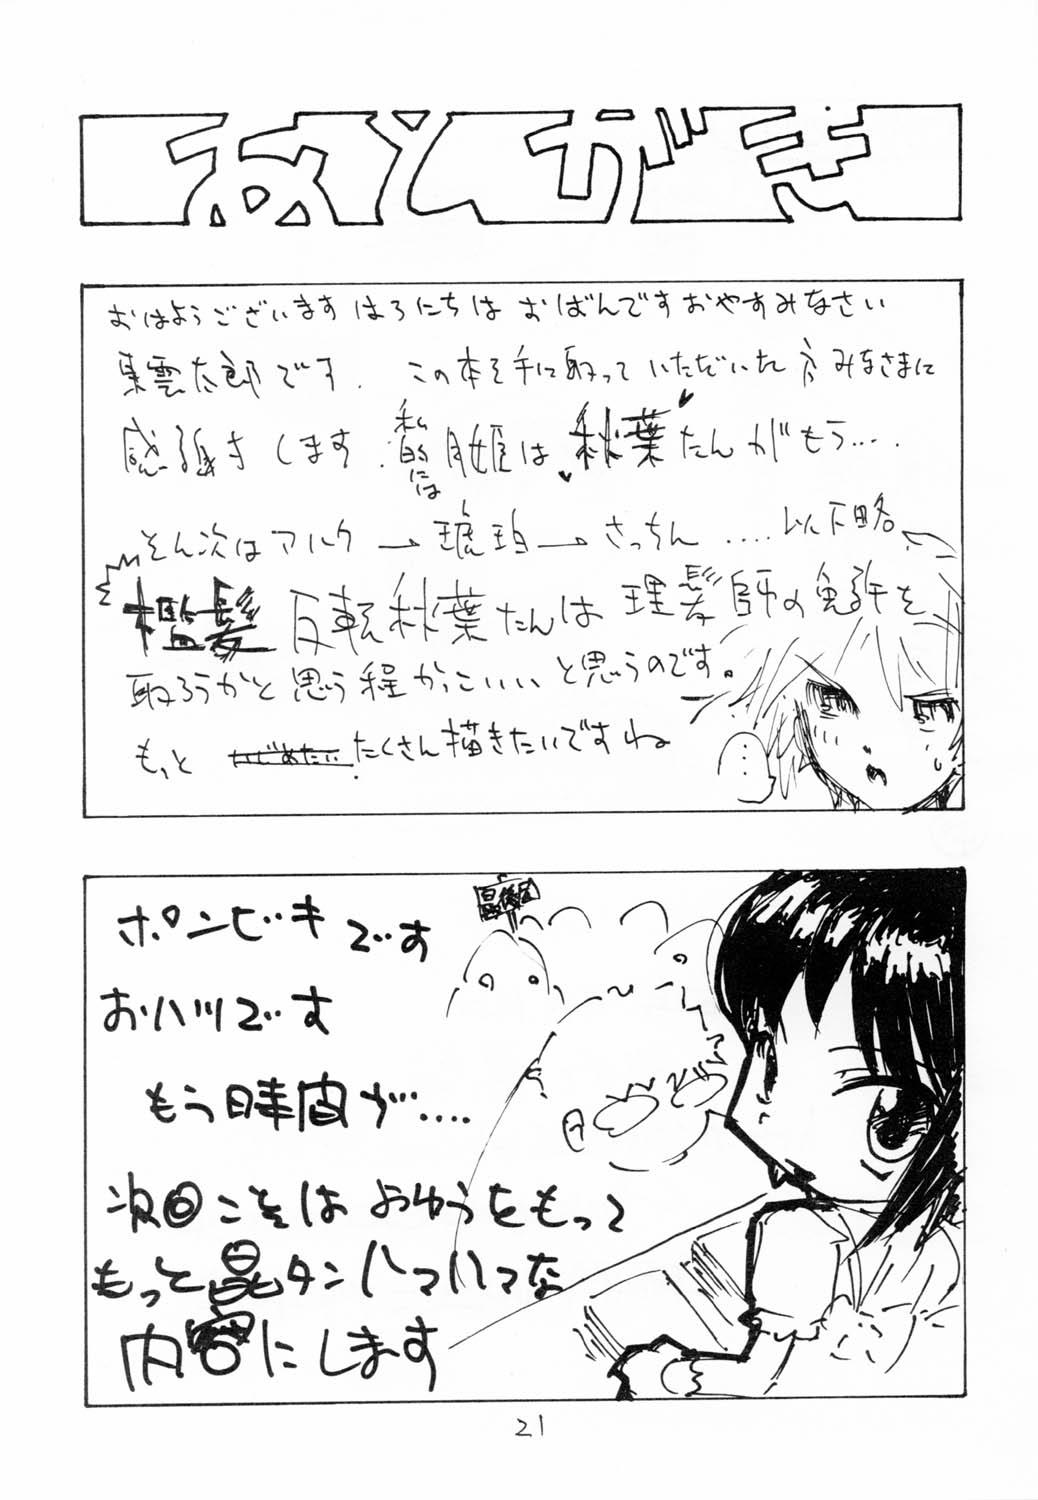 あとがき
おはようございます はろにちは おばんですおやすみなさい
東雲太郎です. この本を手に取っていただいた方みなさまに
感謝きします. 私的には月姫は秋葉たんがもう....
そん次はアルク → 琥珀 → さっちん ....以下略
檻髪 反転秋葉たんは理髪師の免許を
取ろうかと思う程かっこいいと思うのです。
もっと いじめたい たくさん描きたいですね
...
ポンビキです
おハツです
もう時間が....
次回こそはよゆうをもって
もっと晶タンハァハァな
内容にします
最後尾
21